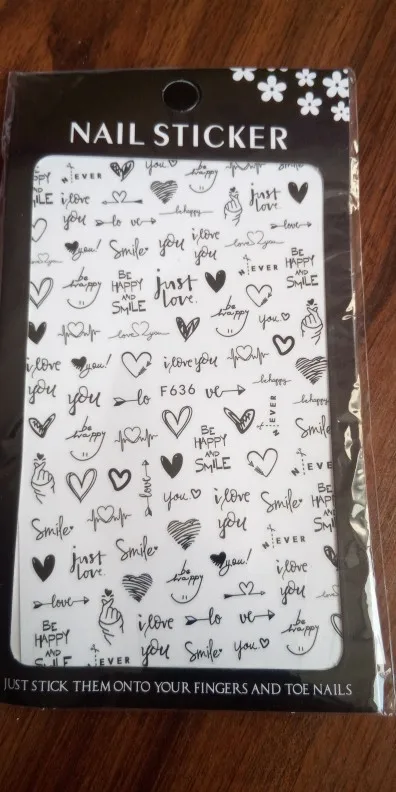 NAIL STICKER
EVER
you
be happy
smile
i love
just love.
you
lo ve
be happy
love
you!
Smile
you
i love you
love you
N EVER
BE HAPPY AND SMILE
be happy
BE HAPPY AND SMILE
just love.
be happy
you
love you
i love you
you!
i love you
be happy
you
lo
F636
ve
be happy
N EVER
Smile
be happy
BE HAPPY AND SMILE
N EVE
love
you
i love you
Smile
BE HAPPY AND SMILE
Smile
just love.
Smile
you!
N EVER
be happy
i love you
love
i love you
lo ve
be happy
BE HAPPY AND SMILE
EVER
Smile
you
JUST STICK THEM ONTO YOUR FINGERS AND TOE NAILS